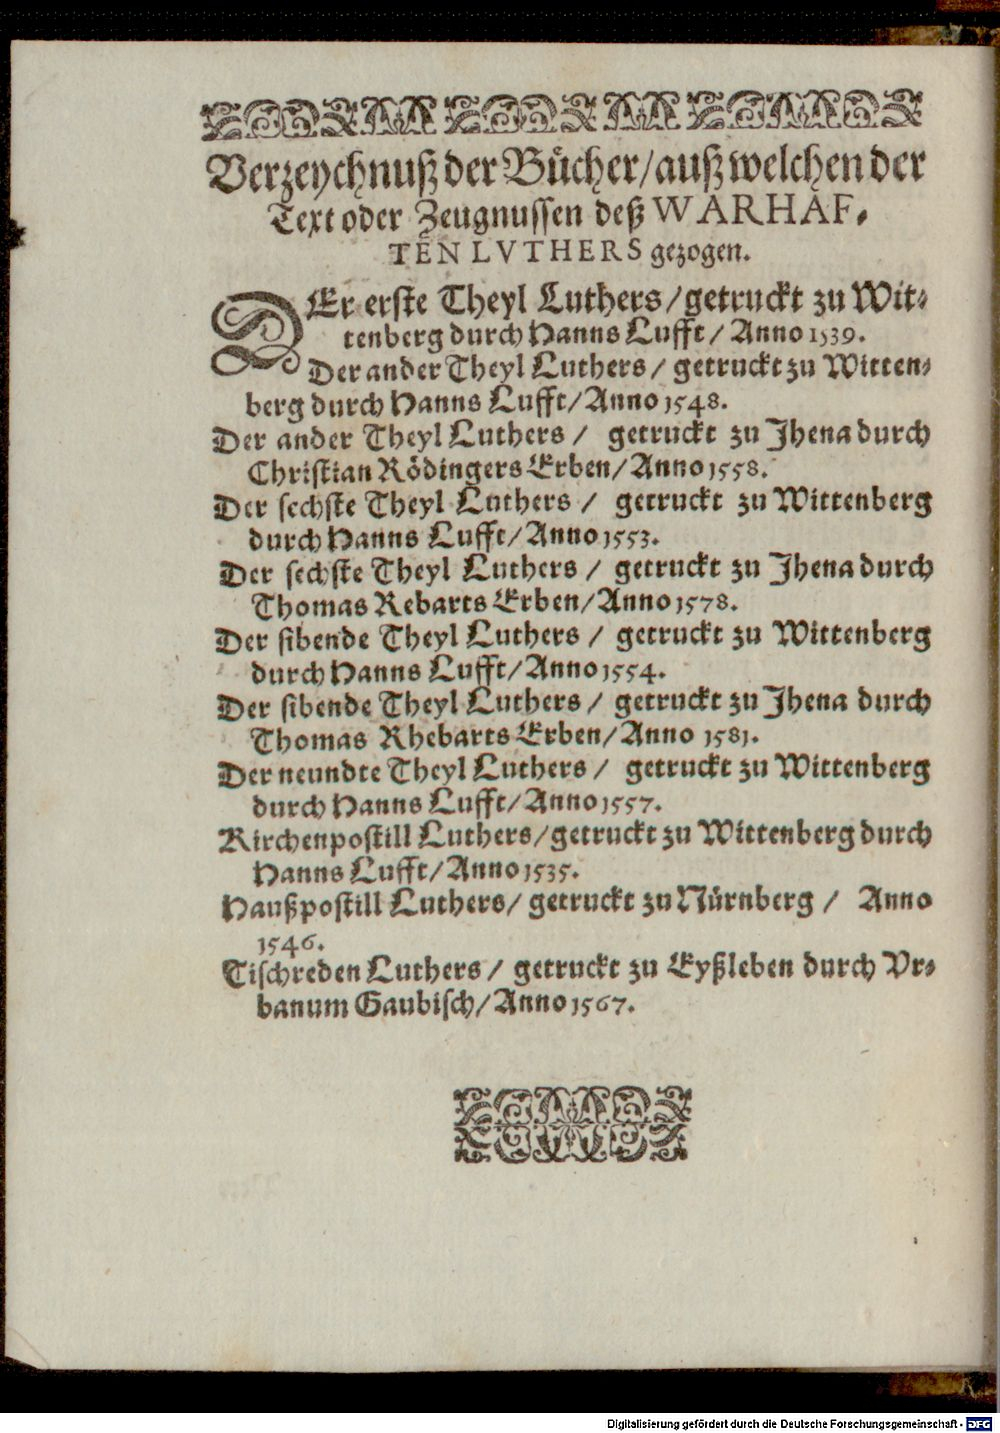 Verzeychnuß der Bücher/ auß welchen der
Text oder Zeugnussen deß WARHAF-
TEN LVTHERS gezogen.
DEr erste Theyl Luthers/ getruckt zu Wit-
tenberg durch Hanns Lufft/ Anno 1539.
Der ander Theyl Luthers/ getruckt zu Witten-
berg durch Hanns Lufft/ Anno 1548.
Der ander Theyl Luthers/ getruckt zu Jhena durch
Christian Rödingers Erben/ Anno 1558.
Der sechste Theyl Luthers/ getruckt zu Wittenberg
durch Hanns Lufft/ Anno 1553.
Der sechste Theyl Luthers/ getruckt zu Jhena durch
Thomas Rebarts Erben/ Anno 1578.
Der sibende Theyl Luthers/ getruckt zu Wittenberg
durch Hanns Lufft/ Anno 1554.
Der sibende Theyl Luthers/ getruckt zu Jhena durch
Thomas Rhebarts Erben/ Anno 1581.
Der neundte Theyl Luthers/ getruckt zu Wittenberg
durch Hanns Lufft/ Anno 1557.
Kirchenpostill Luthers/ getruckt zu Wittenberg durch
Hanns Lufft/ Anno 1535.
Haußpostill Luthers/ getruckt zu Nürnberg/ Anno
1546.
Tischreden Luthers/ getruckt zu Eyßleben durch Vr-
banum Gaubisch/ Anno 1567.
Digitalisierung gefördert durch die Deutsche Forschungsgemeinschaft - DFG